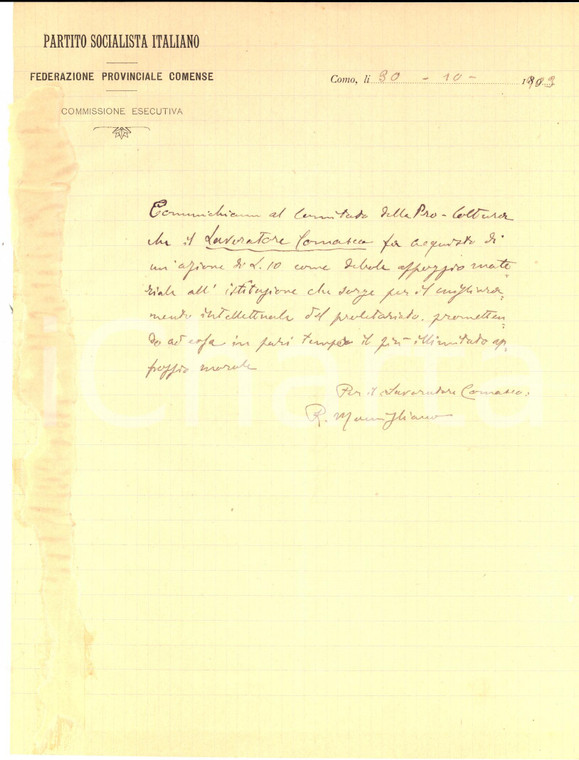 PARTITO SOCIALISTA ITALIANO
FEDERAZIONE PROVINCIALE COMENSE
COMMISSIONE ESECUTIVA
Como, li 30 - 10 - 1903
Comunichiamo al Comitato della Pro-Coltura
che il Lavoratore Comasco fa acquisto di
un'azione di L. 10 come debole appoggio mate-
riale all'istituzione che sorge per il migliora-
mento intellettuale del proletariato, prometten-
do ad essa in pari tempo il più illimitato ap-
poggio morale
Per il Lavoratore Comasco,
R. Momigliano
iCharta